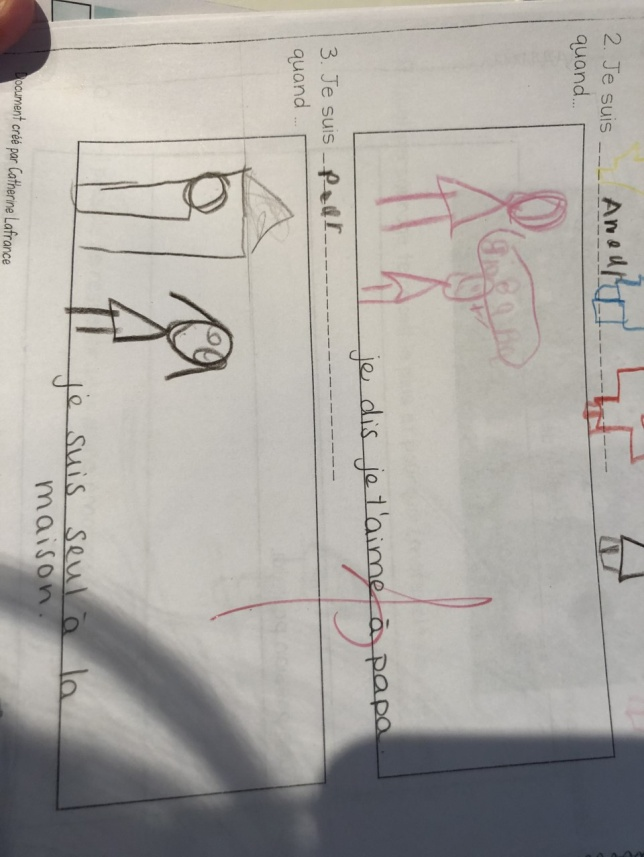 2. Je suis Amour
quand...
je dis je t'aime à papa.
3. Je suis Peur
quand...
je suis seul à la
maison.
Document créé par Catherine Lafrance